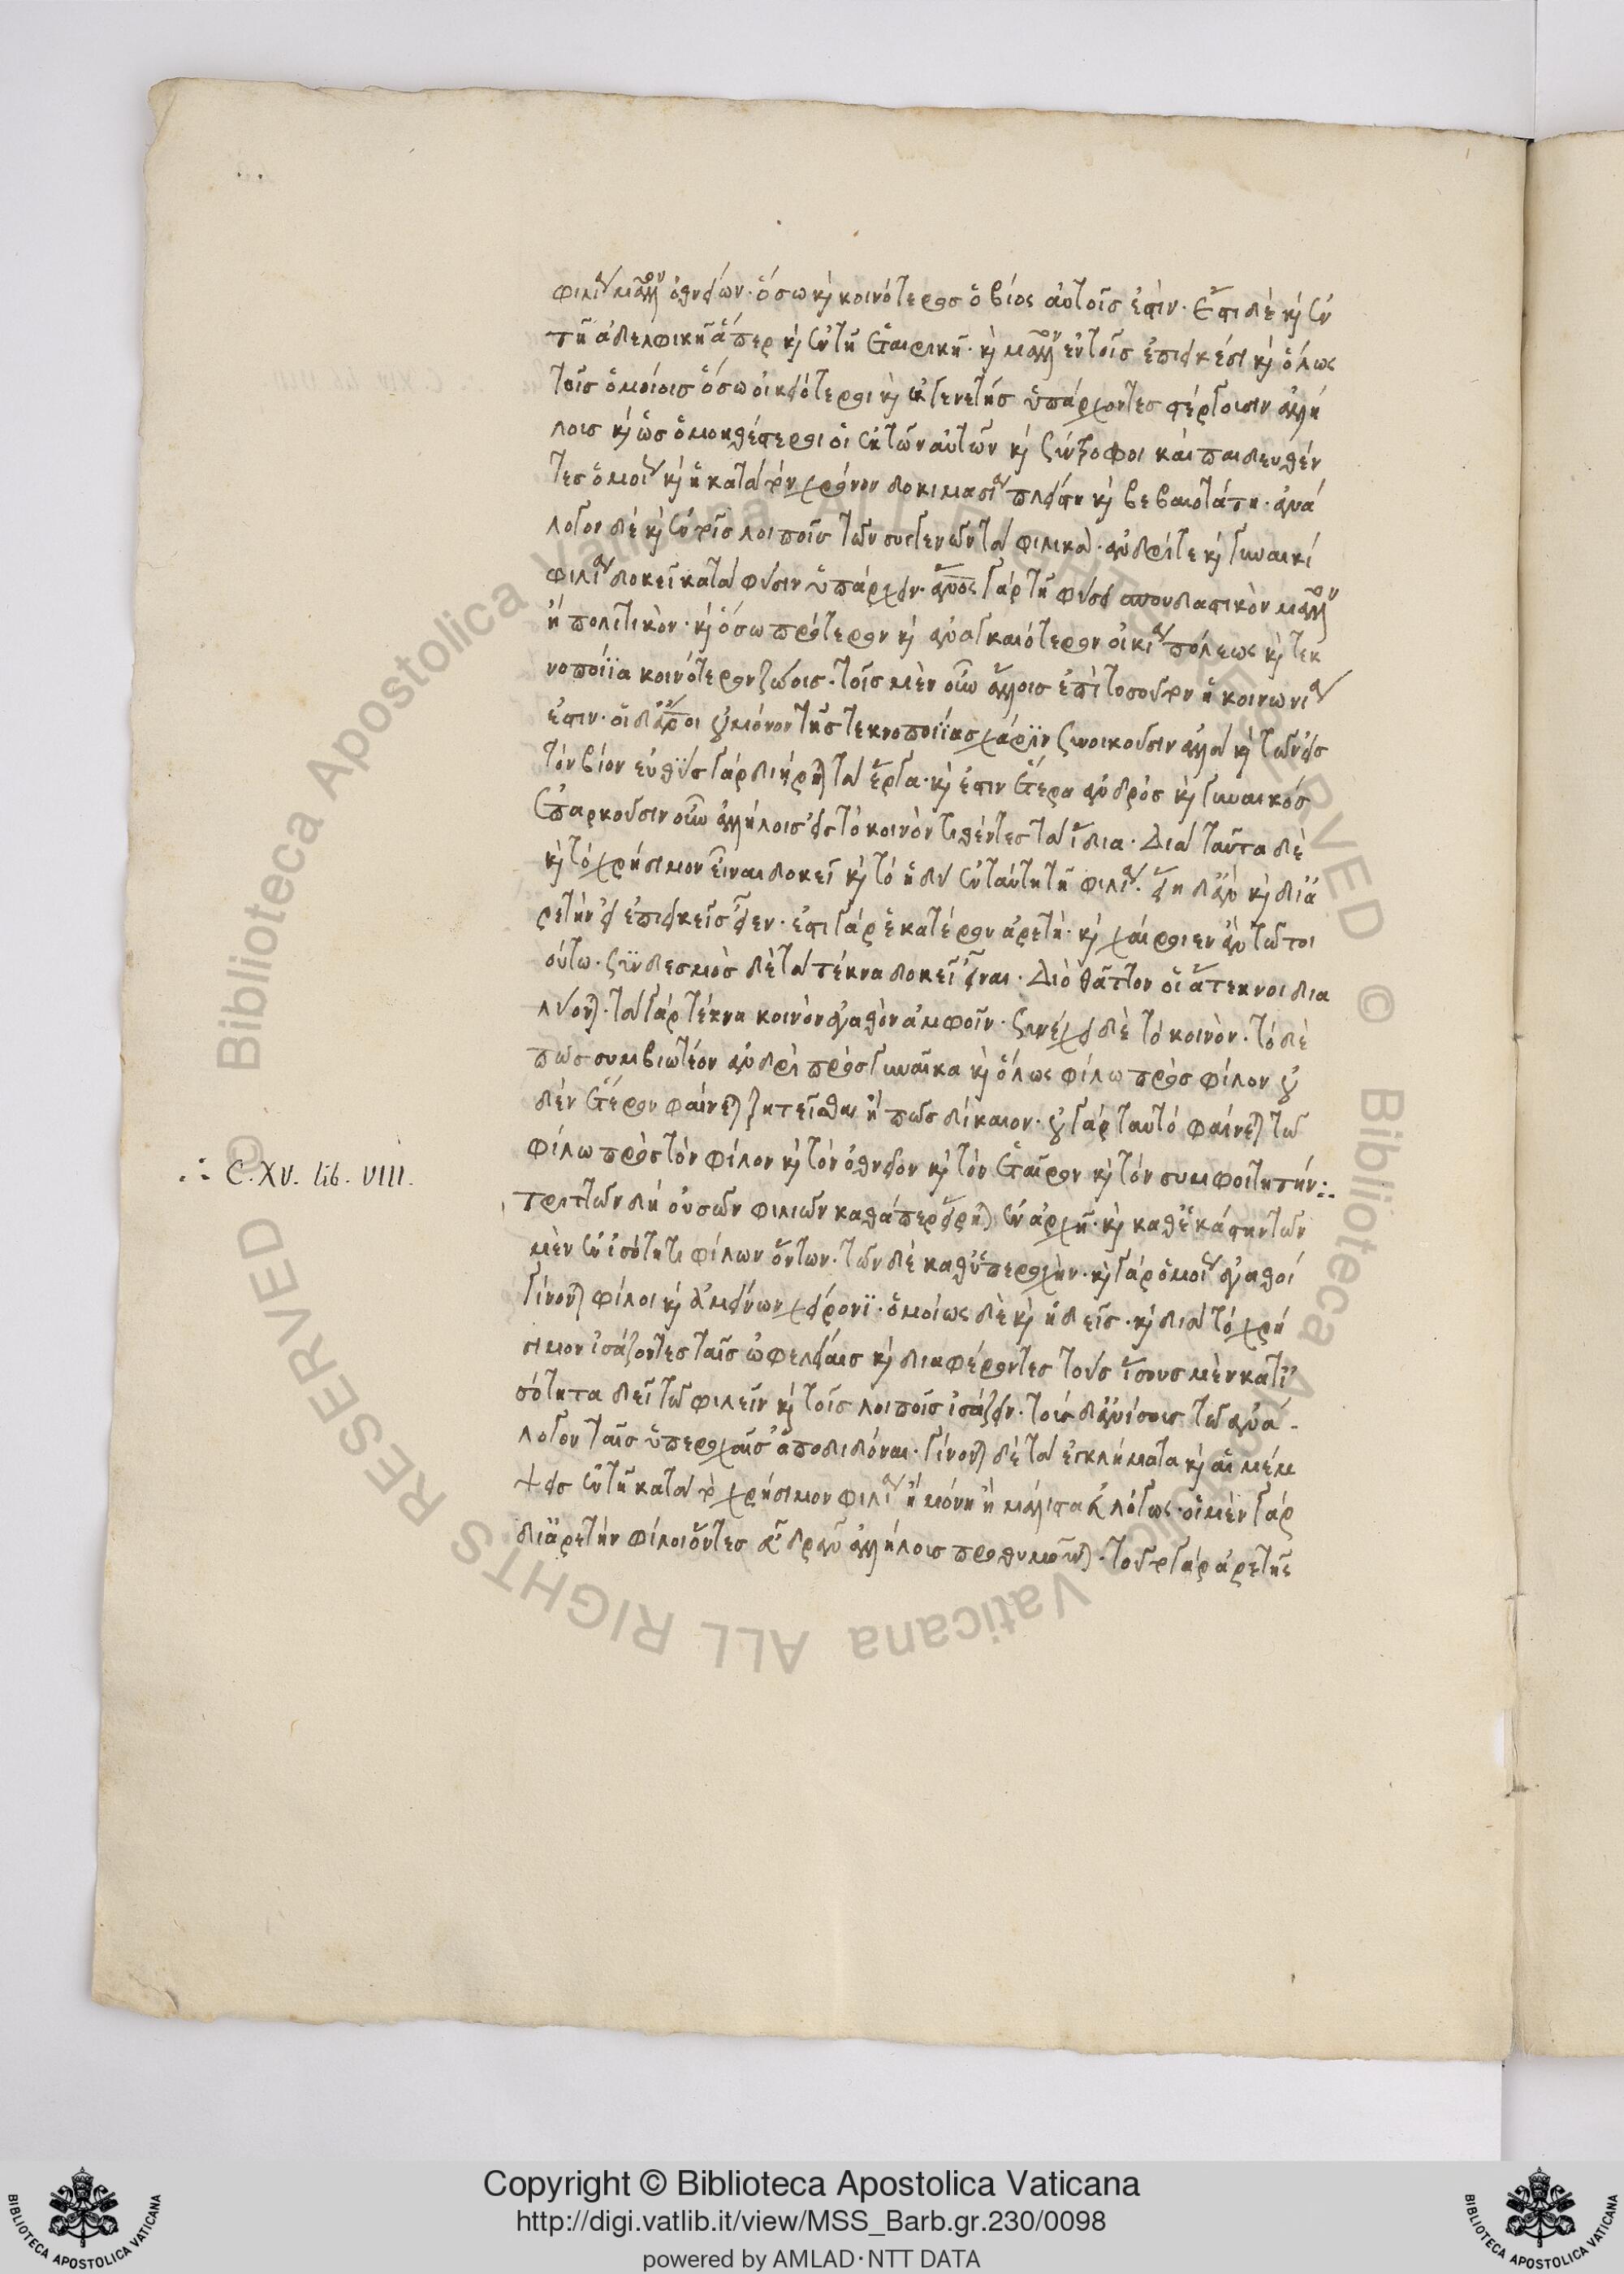 φιλία μᾶλλον ὀθνείων· ὅσω καὶ κοινότερος ὁ βίος αὐτοῖς ἐστίν· ἔστι δὲ καὶ ἐν
τῆ ἀδελφικῆ ἅπερ καὶ ἐν τῆ ἑταιρικῆ· καὶ μᾶλλον ἐν τοῖς ἐπιεικέσι καὶ ὅλως
τοῖς ὁμοίοις ὅσω οἰκειότεροι καὶ ἐκ γενετῆς ὑπάρχοντες στέργουσιν ἀλλή
λοις καὶ ὅσω ὁμοηθέστεροι οἱ ἐκ τῶν αὐτῶν καὶ σύντροφοι καὶ παιδευθέν
τες ὁμοίως καὶ ἡ κατὰ τὸν χρόνον δοκιμασία πλείστη καὶ βεβαιοτάτη· ἀνά
λογον δὲ καὶ ἐν τοῖς λοιποῖς τῶν συγγενῶν τὰ φιλικὰ· ἀνδρί τε καὶ γυναικί
φιλία δοκεῖ κατὰ φύσιν ὑπάρχειν· ἄνθρωπος γάρ τῆ φύσει συνδιαστικὸν μᾶλλον
ἢ πολιτικὸν· καὶ ὅσω πρότερον καὶ ἀναγκαιότερον οἰκία πόλεως καὶ τεκ
νοποιΐα κοινότερον ζώοις· τοῖς μὲν οὖν ἄλλοις ἐπὶ τοσοῦτον ἡ κοινωνία
ἐστιν· οἱ δ' ἄνθρωποι οὐ μόνον τῆς τεκνοποιΐας χάριν συνοικοῦσιν ἀλλὰ καὶ τῶν εἰς
τὸν βίον εὐθὺς γάρ διήρηται τὰ ἔργα· καὶ ἔστιν ἕτερα ἀνδρὸς καὶ γυναικός
ἐπαρκοῦσιν οὖν ἀλλήλοις εἰς τὸ κοινὸν τιθέντες τὰ ἴδια· Διὰ ταῦτα δὲ
καὶ τὸ χρήσιμον εἶναι δοκεῖ καὶ τὸ ἡδὺ ἐν ταύτη τῆ φιλία· εἴη δ' ἂν καὶ δι' ἀ
ρετὴν εἰ ἐπιεικεῖς εἶεν· ἔστι γάρ ἑκατέρου ἀρετὴ· καὶ χαίροιεν ἂν τῶ τοι
ούτω· σύνδεσμος δὲ τὰ τέκνα δοκεῖ εἶναι· Διὸ θᾶττον οἱ ἄτεκνοι δια
λύονται· τὰ γάρ τέκνα κοινὸν ἀγαθὸν ἀμφοῖν· συνέχει δὲ τὸ κοινὸν· τὸ δὲ
πῶς συμβιωτέον ἀνδρὶ πρὸς γυναῖκα καὶ ὅλως φίλω πρὸς φίλον οὐ
δὲν ἕτερον φαίνεται ζητεῖσθαι ἢ πῶς δίκαιον· οὐ γάρ ταυτὸ φαίνεται τῶ
φίλω πρὸς τὸν φίλον καὶ τὸν ὀθνεῖον καὶ τὸν ἑταῖρον καὶ τὸν συμφοιτητήν:·
∴ C. XV. lib. VIII.
τριττῶν δὴ οὐσῶν φιλιῶν καθάπερ εἴρηται ἐν ἀρχῆ· καὶ καθ' ἑκάστην τῶν
μὲν ἐν ἰσότητι φίλων ὄντων· τῶν δὲ καθ' ὑπεροχὴν· καὶ γάρ ὁμοίως ἀγαθοί
γίνονται φίλοι καὶ ἀμείνων χείρονι· ὁμοίως δὲ καὶ ἡδεῖς· καὶ διὰ τὸ χρή
σιμον ἰσάζοντες ταῖς ὠφελείαις καὶ διαφέροντες τοὺς ἴσους μὲν κατ' ἰ
σότητα δεῖ τῶ φιλεῖν καὶ τοῖς λοιποῖς ἰσάζειν· τοῖς δ' ἀνίσοις τῶ ἀνά-
λογον ταῖς ὑπεροχαῖς ἀποδιδόναι· γίνονται δὲ τὰ ἐγκλήματα καὶ αἱ μέμ
ψεις ἐν τῆ κατὰ τὸ χρήσιμον φιλία ἢ μόνη ἢ μάλιστα εὐλόγως· οἱ μὲν γάρ
δι' ἀρετὴν φίλοι ὄντες εὖ δρᾶν ἀλλήλοις προθυμοῦνται· τοῦτο γάρ ἀρετῆς